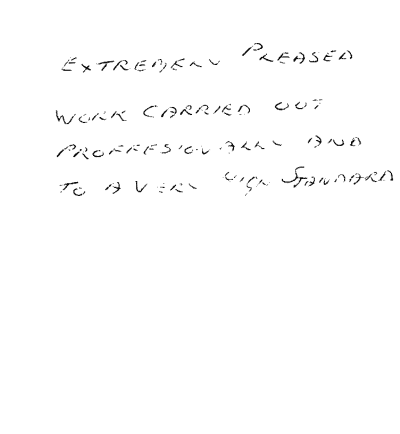 EXTREMELY PLEASED
WORK CARRIED OUT
PROFFESIONALLY AND
TO A VERY HIGH STANDARD